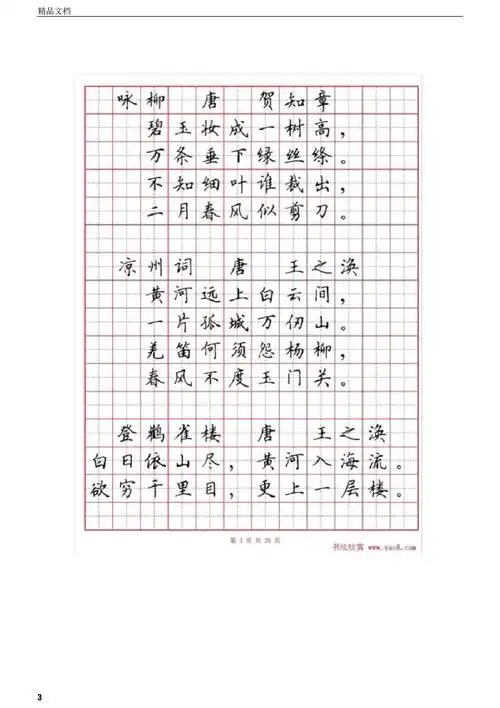 精品文档
咏柳 唐 贺知章
碧玉妆成一树高，
万条垂下绿丝绦。
不知细叶谁裁出，
二月春风似剪刀。
凉州词 唐 王之涣
黄河远上白云间，
一片孤城万仞山。
羌笛何须怨杨柳，
春风不度玉门关。
登鹳雀楼 唐 王之涣
白日依山尽，黄河入海流。
欲穷千里目，更上一层楼。
第 3 页 共 20 页
书法欣赏 www.yac8.com
3